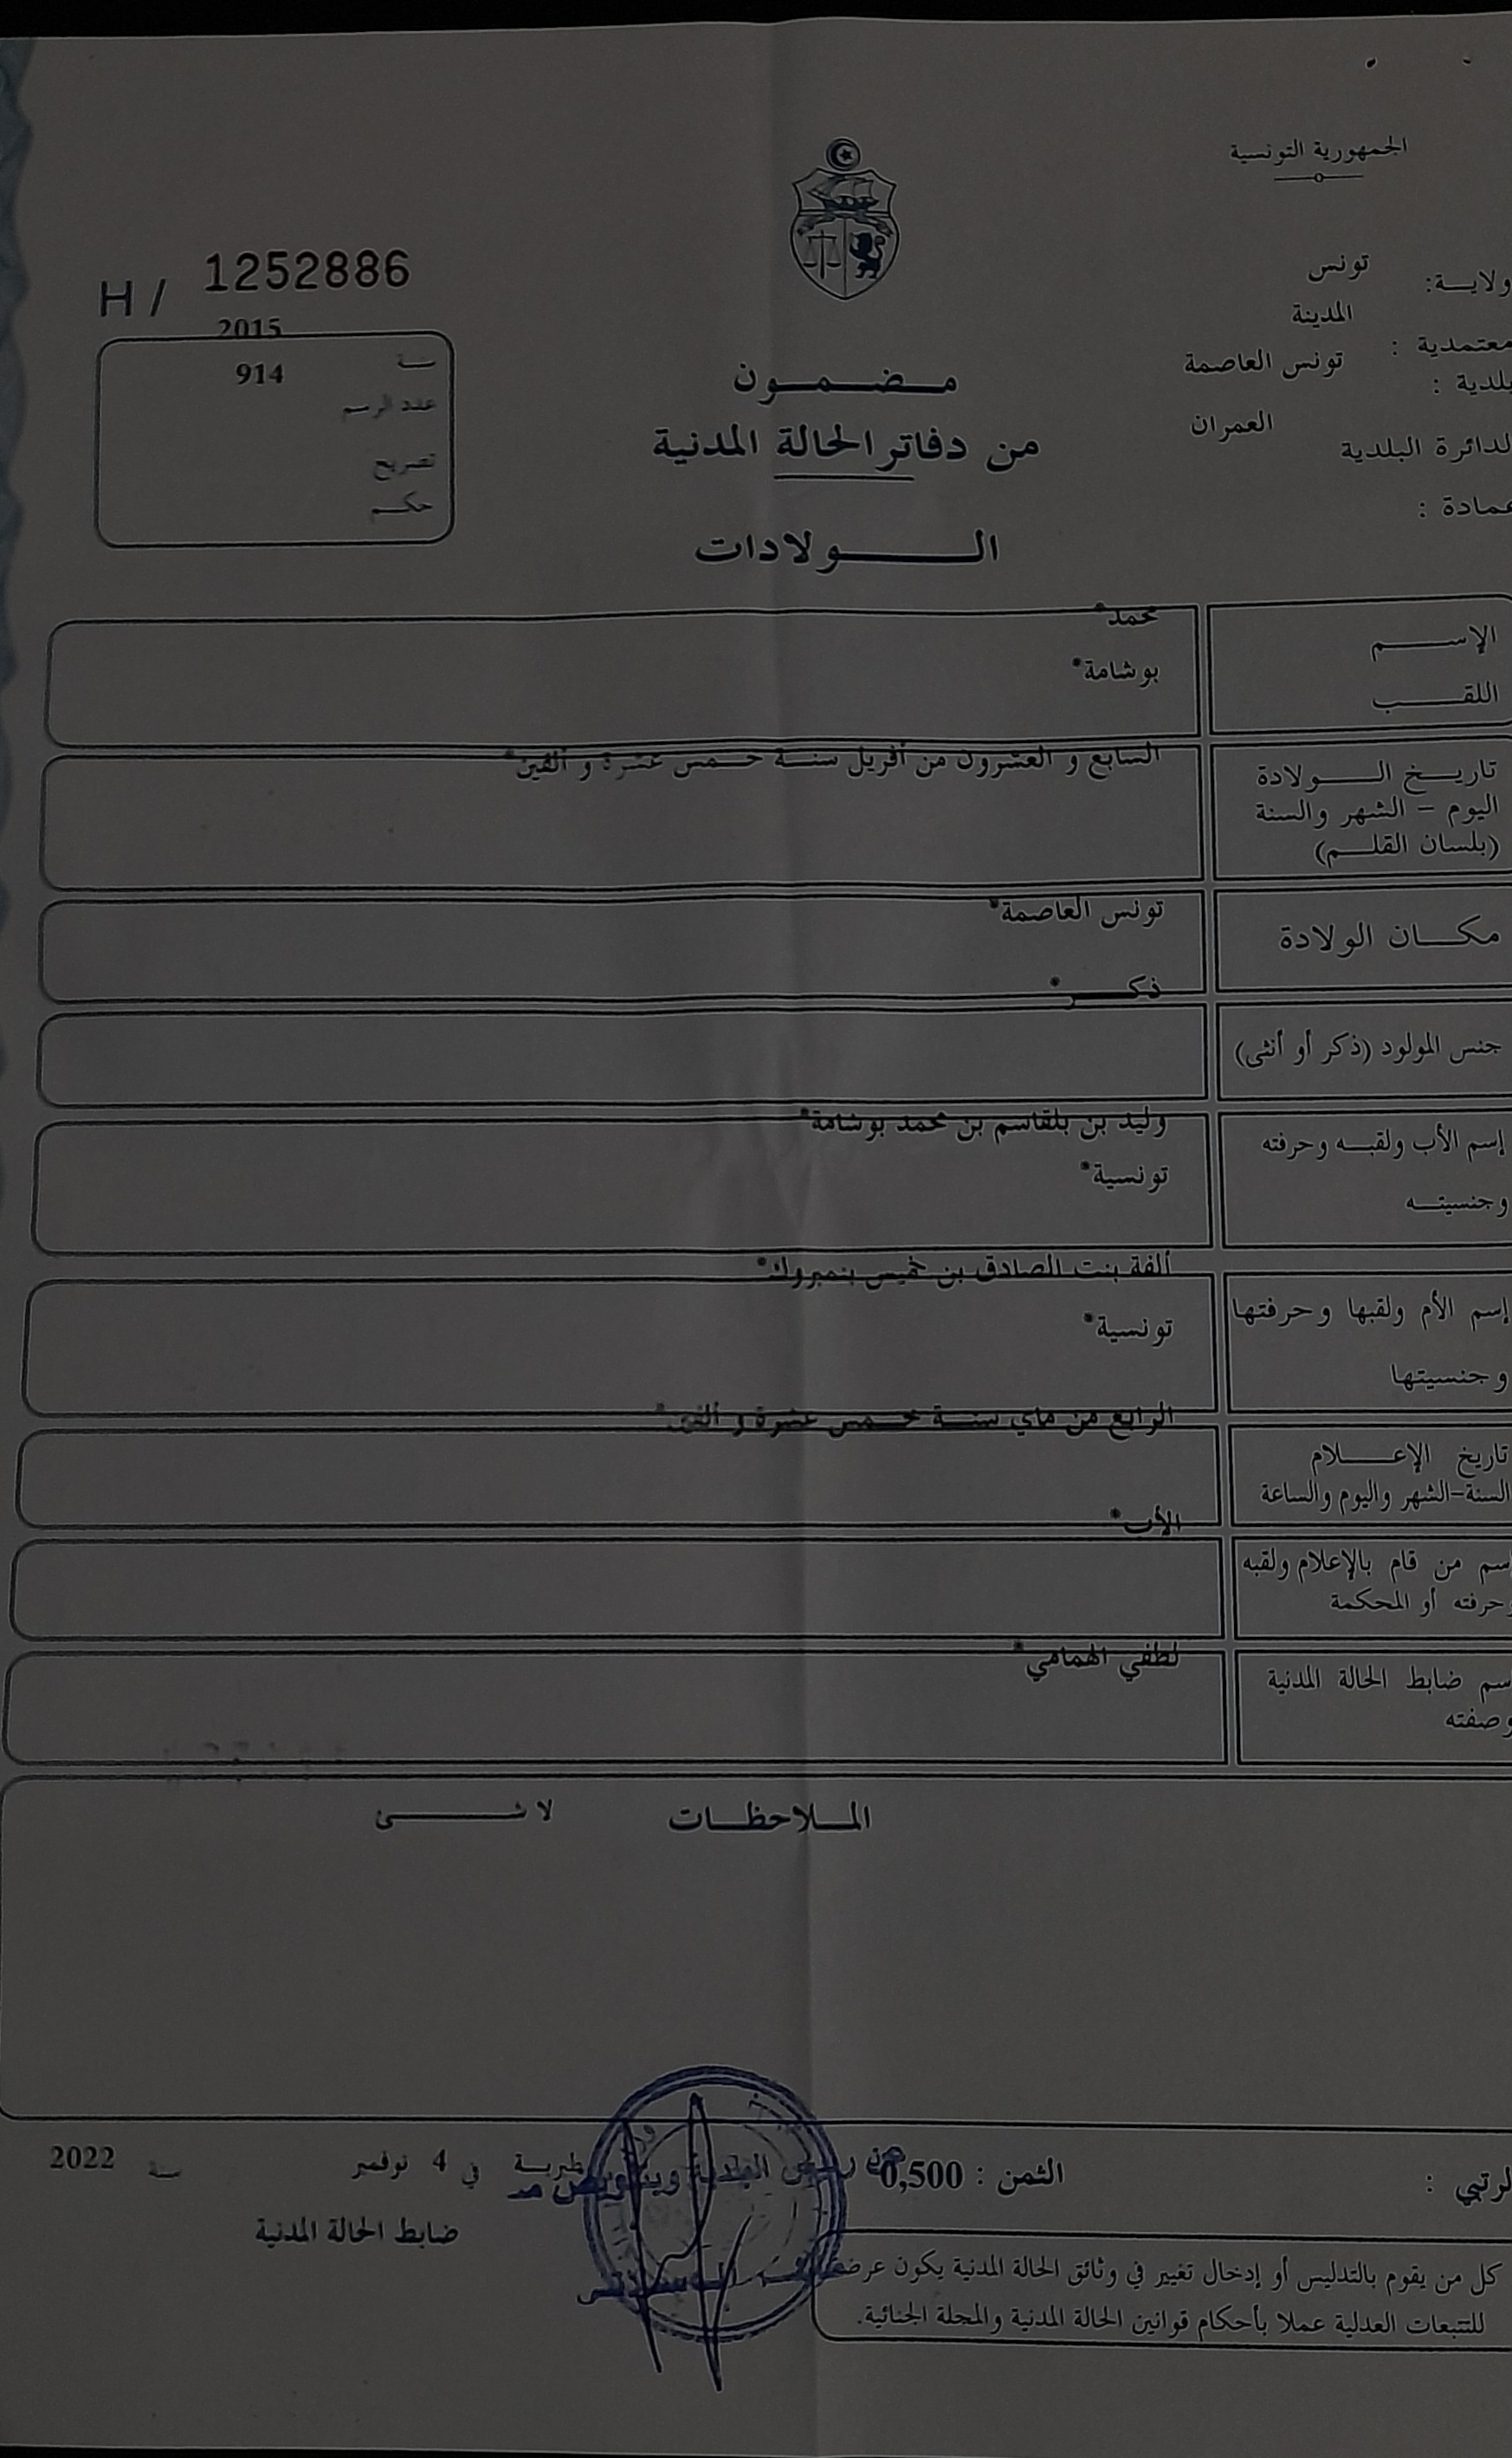 الجمهورية التونسية
ولايــة: تونس
معتمدية : المدينة
بلدية : تونس العاصمة
الدائرة البلدية العمران
عمادة :
H / 1252886
سنة 2015
عدد الرسم 914
تصريح
حكم
مضمون
من دفاتر الحالة المدنية
الولادات
الإسم محمد*
اللقب بوشامة*
تاريخ الولادة السابع و العشرون من أفريل سنة خمس عشرة و ألفين*
اليوم – الشهر والسنة
(بلسان القلم)
مكان الولادة تونس العاصمة*
ذكر*
جنس المولود (ذكر أو أنثى)
إسم الأب ولقبه وحرفته وليد بن بلقاسم بن محمد بوشامة*
وجنسيته تونسية*
إسم الأم ولقبها وحرفتها ألفة بنت الصادق بن خميس بنمبروك*
وجنسيتها تونسية*
تاريخ الإعلام الرابع من ماي سنة خمس عشرة و ألفين*
السنة-الشهر واليوم والساعة
إسم من قام بالإعلام ولقبه الأب*
وحرفته أو المحكمة
إسم ضابط الحالة المدنية لطفي الهمامي*
وصفته
الملاحظات لا شئ
الثمن : 0,500
طبربة في 4 نوفمبر سنة 2022
ضابط الحالة المدنية
كل من يقوم بالتدليس أو إدخال تغيير في وثائق الحالة المدنية يكون عرضة
للتتبعات العدلية عملا بأحكام قوانين الحالة المدنية والمجلة الجنائية.